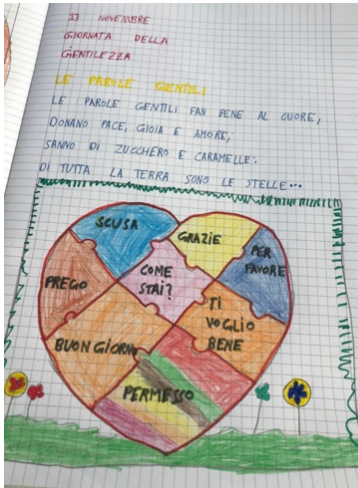 13 NOVEMBRE
GIORNATA DELLA
GENTILEZZA
LE PAROLE GENTILI
LE PAROLE GENTILI FAN BENE AL CUORE,
DONANO PACE, GIOIA E AMORE,
SANNO DI ZUCCHERO E CARAMELLE:
DI TUTTA LA TERRA SONO LE STELLE...
SCUSA
GRAZIE
PER
FAVORE
PREGO
COME
STAI?
TI
VOGLIO
BENE
BUON GIORNO
PERMESSO